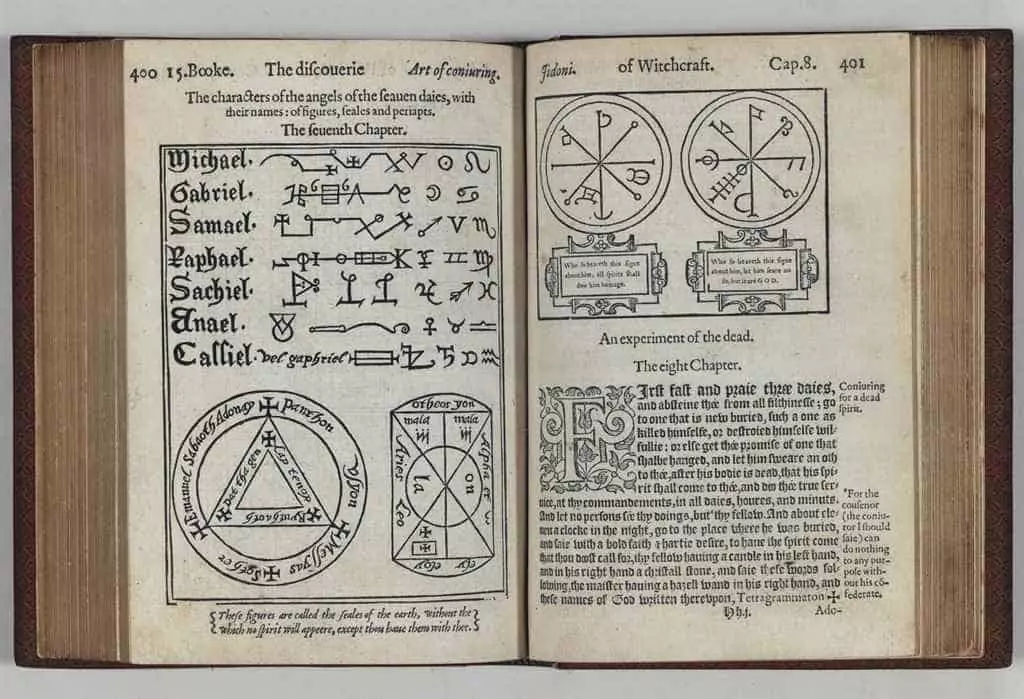 400 15.Booke. The discouerie Art of coniuring.
The characters of the angels of the seauen daies, with
their names: of figures, seales and periapts.
The seuenth Chapter.
Michael.
Gabriel.
Samael.
Raphael.
Sachiel.
Anael.
Cassiel. vel gaphriel
Emanuel Sabaoth Adonay ✠ Panthon
Vsyon
Messyas
otheos yon
mala mala
Aries Leo
la on
Alpha et
These figures are called the seales of the earth, without the
which no spirit will appeere, except thou haue them with thee.
Jidoni. of Witchcraft. Cap.8. 401
Who so beareth this signe
about him, all spirits shall
doo him homage.
Who so beareth this signe
about him, let him feare no
fo, but feare GOD.
An experiment of the dead.
The eight Chapter.
FIrst fast and praie thrée daies,
and absteine thée from all filthinesse; go
to one that is new buried, such a one as
killed himselfe, or destroied himselfe wil-
fullie: or else get thée promise of one that
shalbe hanged, and let him sweare an oth
to thée, after his bodie is dead, that his spi-
rit shall come to thée, and doo thée true ser-
uice, at thy commandements, in all daies, houres, and minuts.
And let no persons sée thy doings, but *thy fellow. And about ele-
uen a clocke in the night, go to the place where he was buried,
and saie with a bold faith & hartie desire, to haue the spirit come
that thou doost call for, thy fellow hauing a candle in his left hand,
and in his right hand a christall stone, and saie these words fol-
lowing, the maister hauing a hazell wand in his right hand, and
these names of God written therevpon, Tetragrammaton ✠
Hh.j. Ado-
Coniuring
for a dead
spirit.
*For the
cousenor
(the coniu-
ror I should
saie) can
do nothing
to any pur-
pose with-
out his cō-
federate.